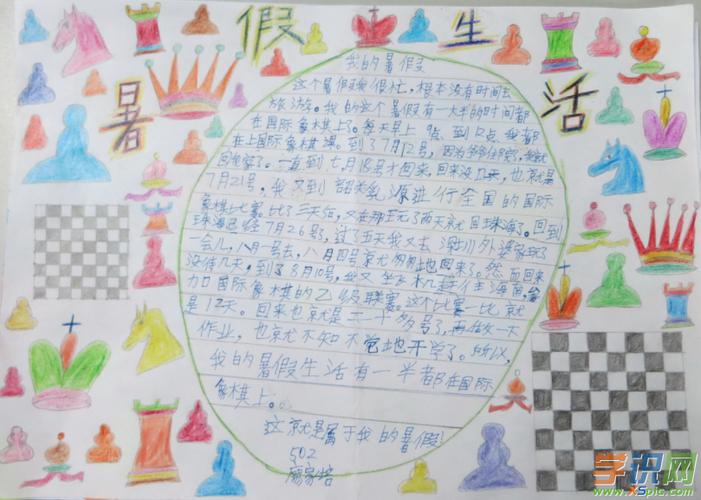 暑假生活
我的暑假
这个暑假我很忙，根本没有时间去
旅游。我的这个暑假有一大半的时间都
在国际象棋上了。每天早上9点到12点，我都
在上国际象棋课。到了7月12号，因为
回老家了。一直到七月18号才回来，回来没几天，也就是
7月21号，我又到韶关乳源进行全国的国际
象棋比赛。比了三天后，又在那玩了两天就回珠海了。回到
珠海已经7月26号，过了五天我又去深圳外婆家玩了
一会儿，八月一号去，八月四号就匆匆地回来了。然而回来
没待几天，到了8月10号，我又坐飞机去往海南，参
加国际象棋的乙级联赛。这个比赛一比就
是12天。回来也就是二十多号了，再做一天
作业，也就不知不觉地开学了。所以，
我的暑假生活有一半都在国际
象棋上。
这就是属于我的暑假！
502
学识网
www.xspic.com